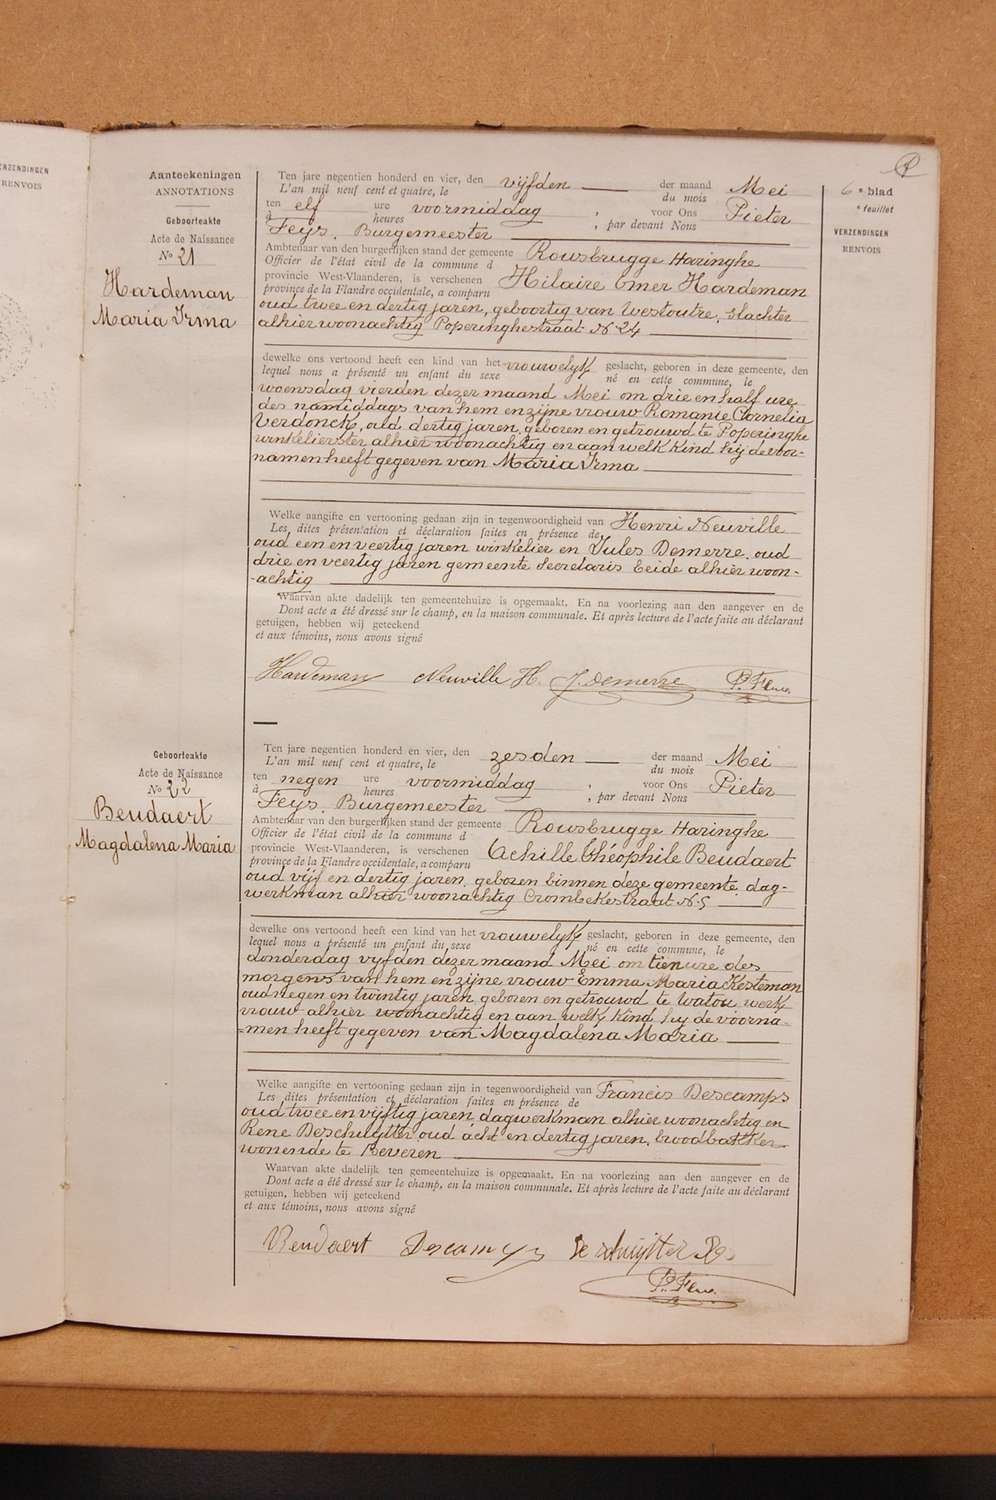 VERZENDINGEN
RENVOIS
6e blad
e feuillet
VERZENDINGEN
RENVOIS
Aanteekeningen
ANNOTATIONS
Geboorteakte
Acte de Naissance
No 21
Hardeman
Maria Irma
Ten jare negentien honderd en vier, den vijfden der maand Mei
L'an mil neuf cent et quatre, le du mois
ten elf ure voormiddag, voor Ons Pieter
à heures , par devant Nous
Feys, Burgemeester
Ambtenaar van den burgerlijken stand der gemeente Rousbrugge Haringhe
Officier de l'état civil de la commune d
provincie West-Vlaanderen, is verschenen Hilaire Omer Hardeman
province de la Flandre occidentale, a comparu
oud twee en dertig jaren, geboortig van Westoutre, slachter
alhier woonachtig Poperinghestraat No 24
dewelke ons vertoond heeft een kind van het vrouwelyk geslacht, geboren in deze gemeente, den
lequel nous a présenté un enfant du sexe né en cette commune, le
woensdag vierden dezer maand Mei om drie en half ure
des namiddags van hem en zijne vrouw Romanie Cornelia
Verdonck, oud dertig jaren, geboren en getrouwd te Poperinghe
winkelierster alhier woonachtig en aan welk kind hy de voor-
namen heeft gegeven van Maria Irma
Welke aangifte en vertooning gedaan zijn in tegenwoordigheid van Henri Neuville
Les dites présentation et déclaration faites en présence de
oud een en veertig jaren winkelier en Jules Demerre, oud
drie en veertig jaren gemeente secretaris beide alhier woon-
-achtig
Waarvan akte dadelijk ten gemeentehuize is opgemaakt. En na voorlezing aan den aangever en de
Dont acte a été dressé sur le champ, en la maison communale. Et après lecture de l'acte faite au déclarant
getuigen, hebben wij geteekend
et aux témoins, nous avons signé
Hardeman Neuville H. J. Demerre P. Feys
Geboorteakte
Acte de Naissance
No 22
Beudaert
Magdalena Maria
Ten jare negentien honderd en vier, den zesden der maand Mei
L'an mil neuf cent et quatre, le du mois
ten negen ure voormiddag, voor Ons Pieter
à heures , par devant Nous
Feys, Burgemeester
Ambtenaar van den burgerlijken stand der gemeente Rousbrugge Haringhe
Officier de l'état civil de la commune d
provincie West-Vlaanderen, is verschenen Achille Théophile Beudaert
province de la Flandre occidentale, a comparu
oud vijf en dertig jaren, geboren binnen deze gemeente, dag-
werkman alhier woonachtig Crombekestraat No 5
dewelke ons vertoond heeft een kind van het vrouwelyk geslacht, geboren in deze gemeente, den
lequel nous a présenté un enfant du sexe né en cette commune, le
donderdag vyfden dezer maand Mei om tien ure des
morgens van hem en zijne vrouw Emma Maria Kesteman
oud negen en twintig jaren, geboren en getrouwd te Watou, werk
vrouw alhier woonachtig en aan welk kind hy de voorna-
=men heeft gegeven van Magdalena Maria
Welke aangifte en vertooning gedaan zijn in tegenwoordigheid van Francis Descamps
Les dites présentation et déclaration faites en présence de
oud twee en vijftig jaren, dagwerkman alhier woonachtig en
Rene Deschuytter oud acht en dertig jaren, broodbakker
wonende te Beveren
Waarvan akte dadelijk ten gemeentehuize is opgemaakt. En na voorlezing aan den aangever en de
Dont acte a été dressé sur le champ, en la maison communale. Et après lecture de l'acte faite au déclarant
getuigen, hebben wij geteekend
et aux témoins, nous avons signé
Beudaert Descamps De schuytter
P. Feys